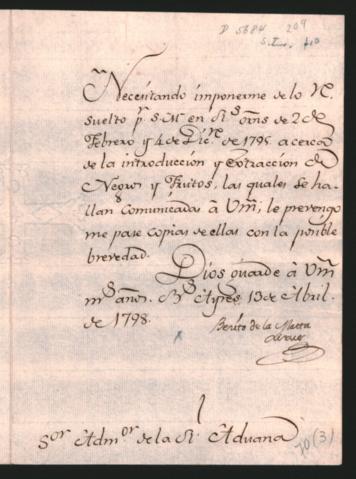 D 5684 209
Necesitando imponerme de lo Re.
suelto pr. S.M. en Rs. ords de 2 de
Febrero y 4 de Dice. de 1795 acerca
de la introduccion y extraccion de
Negros y Frutos, las quales se ha-
llan comunicadas à Vm, le prevengo
me pase copias de ellas con la posible
brevedad.
Dios guarde à Vm
ms. años. Bs. Ayres 13 de Abril.
de 1798.
Benito de la Matta
Linares
Sor. Admor. de la Rl. Aduana
70 (3)